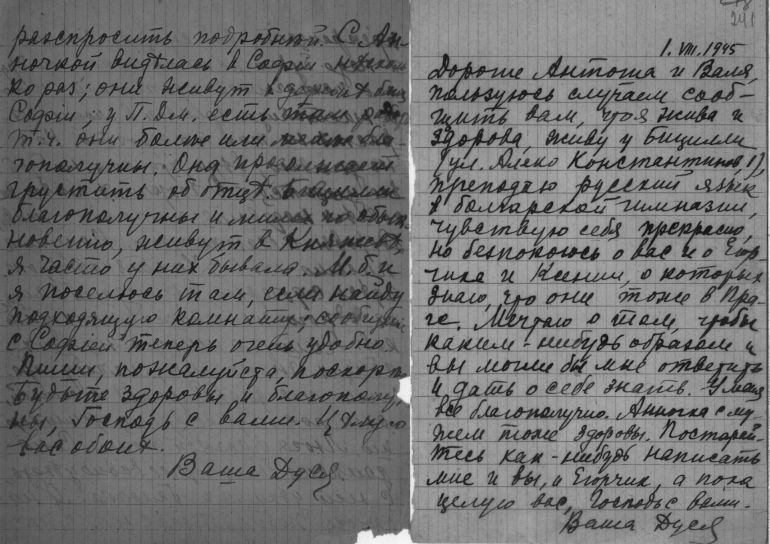 распросить подробнѣй С Ан-
ночкой видѣлась в Софіи
ко раз; они живут в
Софіи; у П. Дм. есть там
т.ч. они болѣе или
гополучны. Она
грустить об отцѣ.
благополучны и милы по обык-
новенію, живут в Княжевѣ,
я часто у них бывала. М.б. и
я поселюсь там, если найду
подходящую комнату;
с Софіей теперь очень удобно.
Пиши, пожалуйста, поскорѣ
Будьте здоровы и благополуч
ны, Господь с вами. Цѣлую
вас обоих.
Ваша Дуся
241
1. VIII. 1945
Дорогие Антоша и Валя,
пользуюсь случаем сооб-
щить вам, что я жива и
здорова, живу у Бицилли
(ул. Алеко Константинов, 1),
преподаю русский язык
в болгарской гимназии,
чувствую себя прекрасно,
но безпокоюсь о вас и о Егор-
чике и Ксении, о которых
знаю, что они тоже в Пра-
ге. Мечтаю о том, чтобы
каким-нибудь образом и
вы могли бы мне ответить
и дать о себе знать. У меня
все благополучно. Анночка с му-
жем тоже здоровы. Постарай-
тесь как-нибудь написать
мне и вы, и Егорчик, а пока
целую вас, Господь с вами.
Ваша Дуся